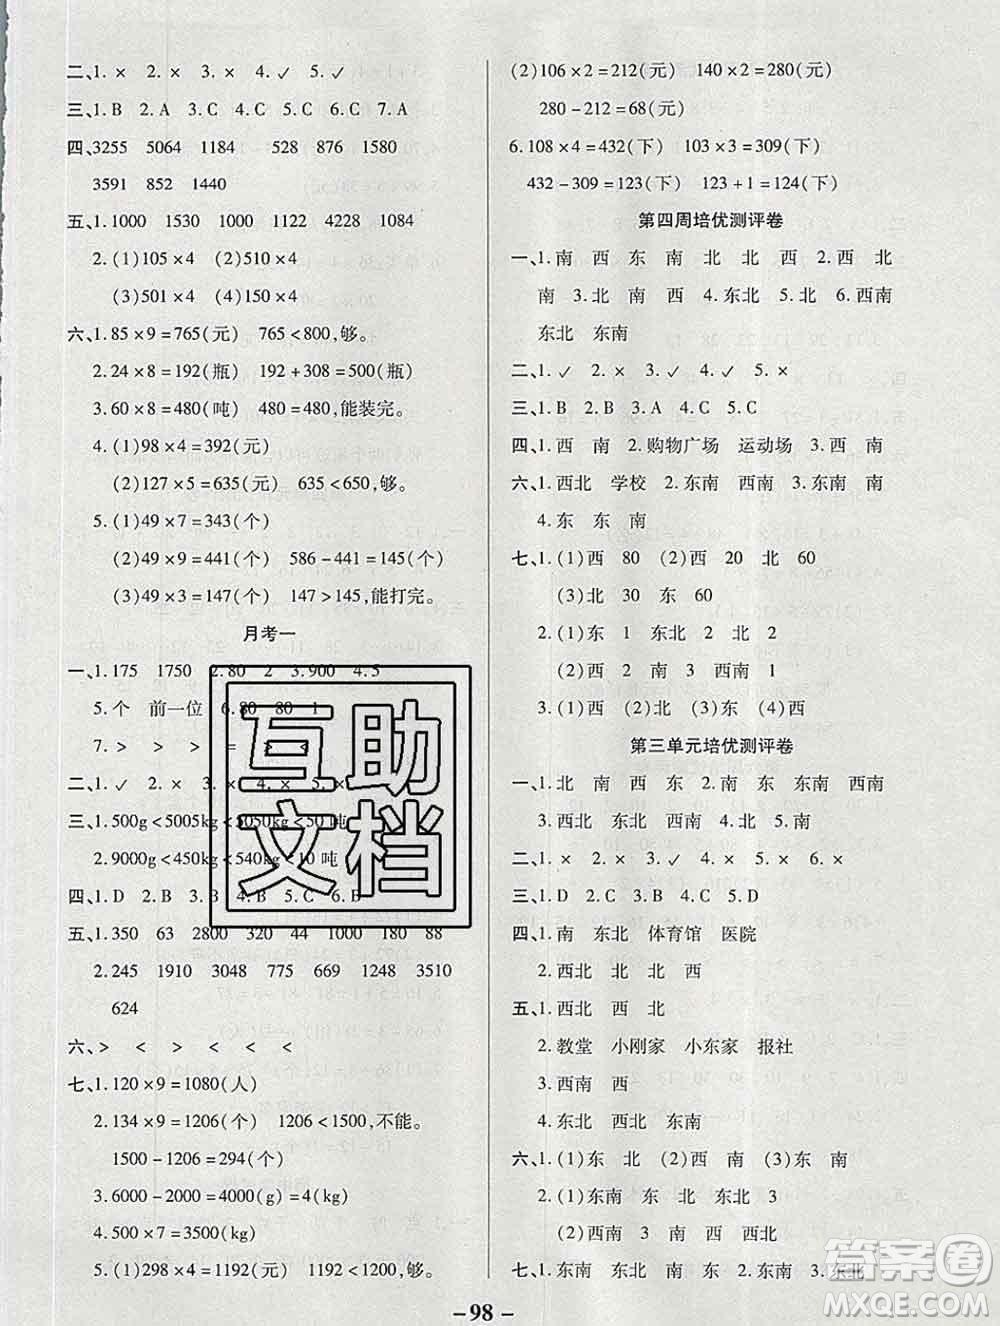 二、1. × 2. × 3. × 4. ✓ 5. ✓
三、1. B 2. A 3. C 4. C 5. C 6. C 7. A
四、3255 5064 1184 528 876 1580
3591 852 1440
五、1. 1000 1530 1000 1122 4228 1084
2. (1)105×4 (2)510×4
(3)501×4 (4)150×4
六、1. 85×9=765(元) 765<800,够。
2. 24×8=192(瓶) 192+308=500(瓶)
3. 60×8=480(吨) 480=480,能装完。
4. (1)98×4=392(元)
(2)127×5=635(元) 635<650,够。
5. (1)49×7=343(个)
(2)49×9=441(个) 586-441=145(个)
(3)49×3=147(个) 147>145,能打完。
月考一
一、1. 175 1750 2. 80 2 3. 900 4. 5
5. 个 前一位 6. 80 80 1
7. > > > = > <
二、1. ✓ 2. × 3. × 4. × 5. ×
三、1. 500g<5005kg<5050kg<50吨
2. 9000g<450kg<540kg<10吨
四、1. D 2. B 3. B 4. B 5. C 6. B
五、1. 350 63 2800 320 44 1000 180 88
2. 245 1910 3048 775 1368 1148 3510
624
六、> < > < < <
七、1. 120×9=1080(人)
2. 134×9=1206(个) 1206<1500,不能。
1500-1206=294(个)
3. 6000-2000=4000(g)=4(kg)
4. 500×7=3500(kg)
5. (1)298×4=1192(元) 1192<1200,够。
(2)106×2=212(元) 140×2=280(元)
280-212=68(元)
6. 108×4=432(下) 103×3=309(下)
432-309=123(下) 123+1=124(下)
第四周培优测评卷
一、1. 南 西 东 南 北 北 西 2. 西 北
南 3. 北 南 西 4. 东北 5. 北 6. 西南
东北 东南
二、1. ✓ 2. × 3. ✓ 4. ✓ 5. ×
三、1. B 2. B 3. A 4. C 5. C
四、1. 西 南 2. 购物广场 运动场 3. 西 南
六、1. 西北 学校 2. 东南 西南 3. 东南 南
4. 东 东 南
七、1. (1)西 80 (2)西 20 北 60
(3)北 30 东 60
2. (1)东 1 东北 2 北 2
(2)西 2 南 3 西南 1
3. (1)西 (2)北 (3)东 (4)西
第三单元培优测评卷
一、1. 北 南 西 东 2. 南 东 东南 西南
3. 东北 南 西南 4. 北 5. 南
二、1. × 2. × 3. ✓ 4. ✓ 5. × 6. ×
三、1. D 2. C 3. B 4. C 5. D
四、1. 南 东北 体育馆 医院
2. 西北 北 北 西
五、1. 西北 西 北
2. 教堂 小刚家 小东家 报社
3. 西南 西
4. 东北 西北 东南
六、1. (1)东 北 (2)西 南 (3)东 南
2. (1)东南 东 北 东北 3
(2)西南 3 南 西 西北
七、1. 东南 东北 南 东 2. 东 东南 东北
-98-
互助
文档
答案圈
MXQE.COM